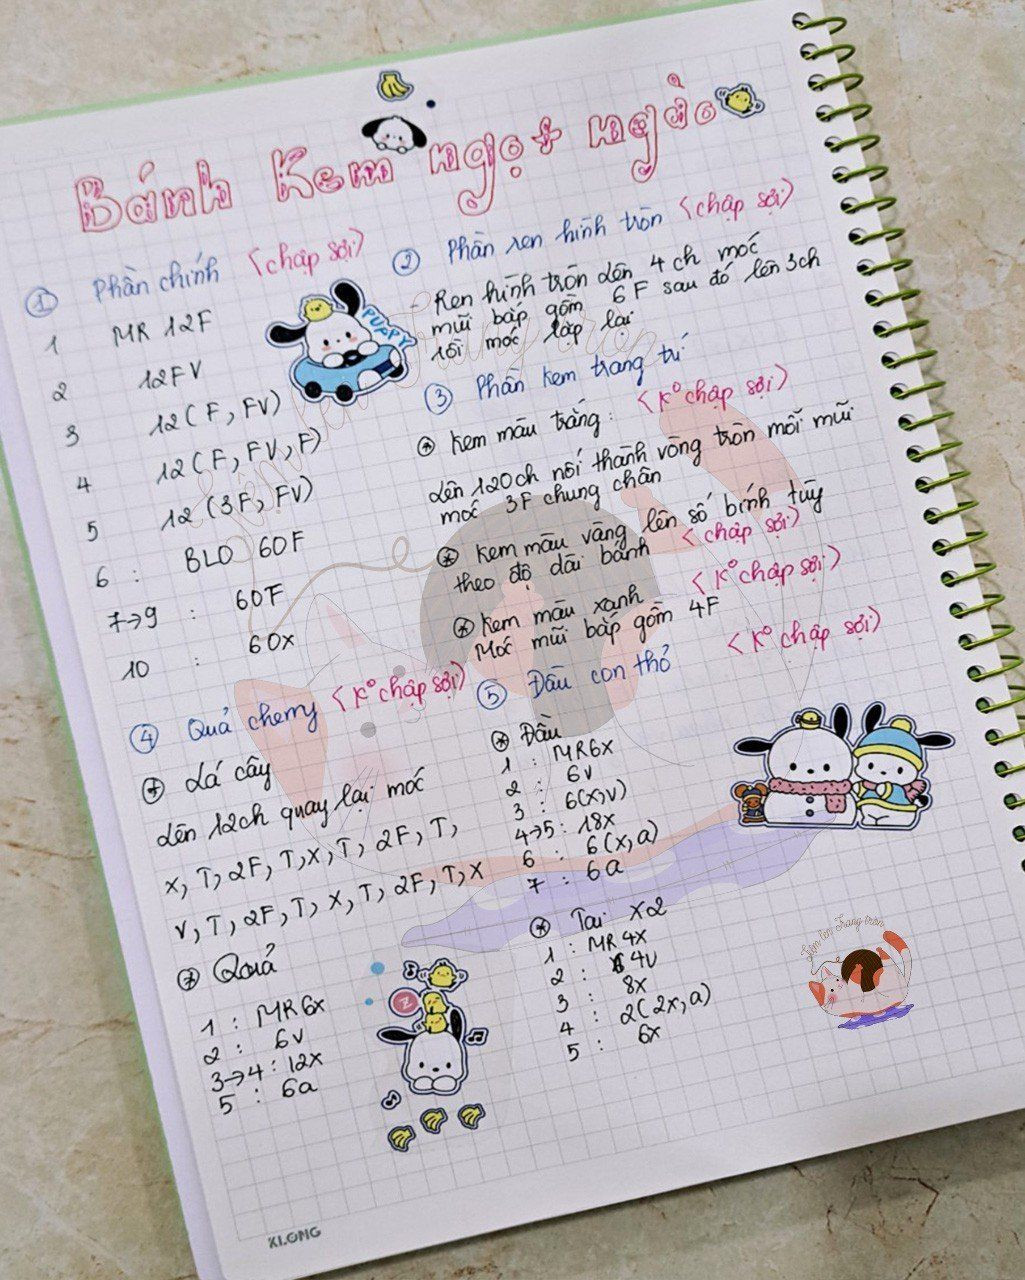 Bánh Kem ngọt ngào
① Phần chính <chập sợi>
1 MR 12F
2 12FV
3 12(F, FV)
4 12(F, FV, F)
5 12(3F, FV)
6 : BLO 60F
7→9 : 60F
10 : 60x
PUPPY
② Phần ren hình tròn <chập sợi>
- Ren hình tròn lên 4 ch móc
mũi bắp gồm 6F sau đó lên 3ch
rồi móc lặp lại
③ Phần kem trang trí
⊛ Kem màu trắng : <K° chập sợi>
lên 120ch nối thành vòng tròn mỗi mũi
móc 3F chung chân
⊛ Kem màu vàng lên số bính tùy
theo độ dài bánh <chập sợi>
⊛ Kem màu xanh <K° chập sợi>
Móc mũi bắp gồm 4F
④ Quả cherry <K° chập sợi>
⊛ Lá cây
lên 12ch quay lại móc
x, T, 2F, T, x, T, 2F, T,
V, T, 2F, T, x, T, 2F, T, x
⊛ Quả
1 : MR6x
2 : 6v
3→4 : 12x
5 : 6a
⑤ Đầu con thỏ <K° chập sợi>
⊛ Đầu
1 : MR6x
2 : 6v
3 : 6(x,v)
4→5 : 18x
6 : 6(x,a)
7 : 6a
⊛ Tai x2
1 : MR4x
2 : 4v
3 : 8x
4 : 2(2x,a)
5 : 6x
Z
Tiệm len Trang tròn
KLONG